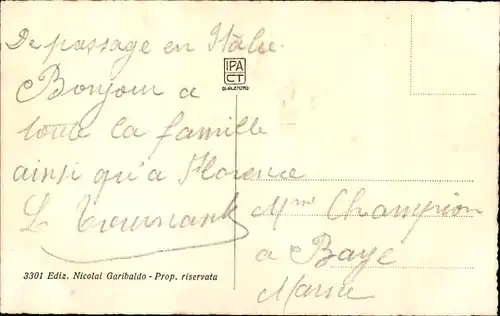 De passage en Italie.
Bonjour a
toute la famille
ainsi qu'a Florence
L
IPA
CT
Mme Champion
a Baye
Marne
3301 Ediz. Nicolai Garibaldo - Prop. riservata